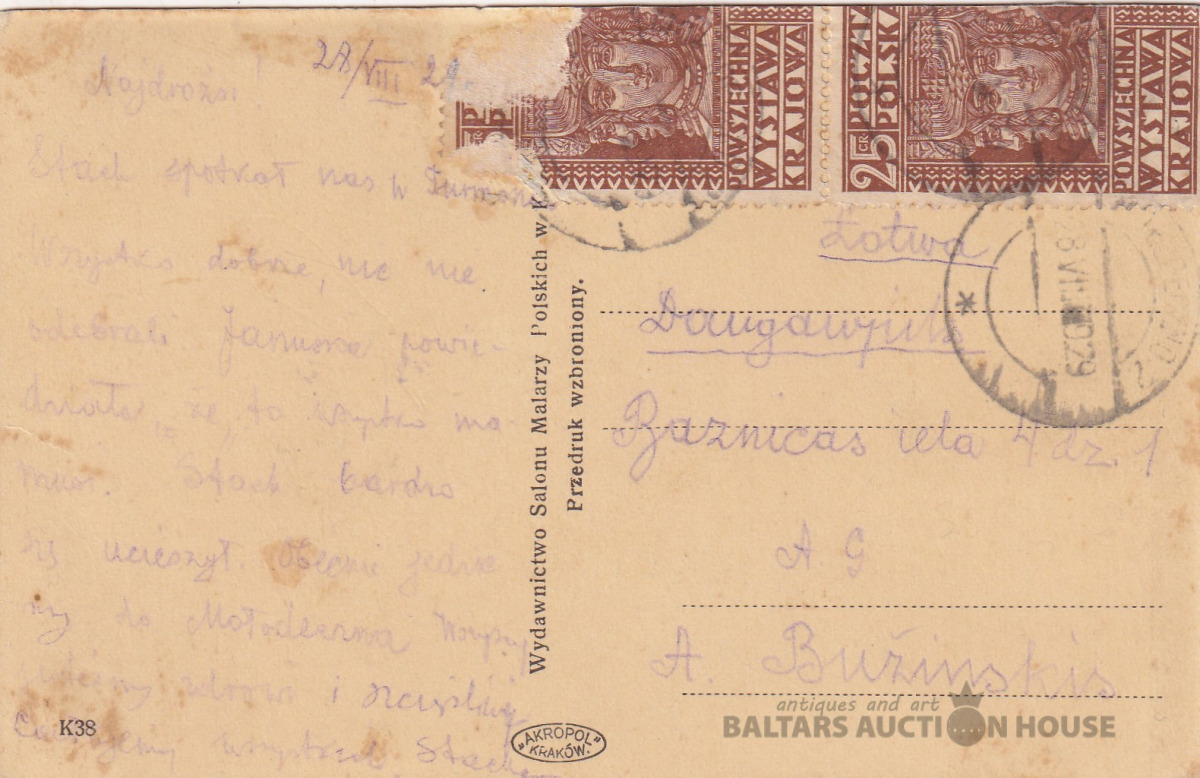 28/VIII 29
Najdrożsi!
Stach spotkał nas w Turmoncie
Wszystko dobrze, nic nie
odebrali Janusza powie-
działa, że to wszystko ma-
Stach bardzo
się ucieszył. Obecnie jedzie-
my do Mołodeczna Wszyscy
jesteśmy zdrowi i szczęśliwi
Całujemy wszystkich Stach
K38
Wydawnictwo Salonu Malarzy Polskich w K
Przedruk wzbroniony.
"AKROPOL"
KRAKÓW.
POWSZECHNA
WYSTAWA
KRAJOWA
25 GR
POCZTA
POLSKA
POWSZECHNA
WYSTAWA
KRAJOWA
Łotwa
Daugawpils
Baznicas iela 4 dz. 1
A G
A. Bużinskis
antiques and art
BALTARS AUCTION HOUSE